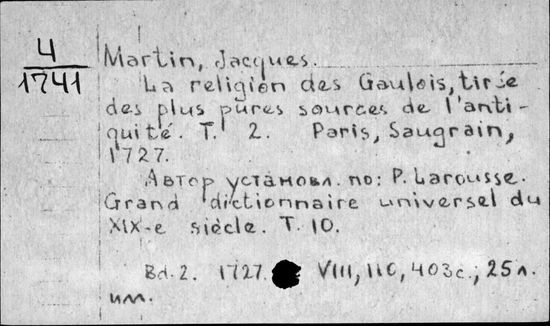 4
1741
Martin, Jacques.
La religion des Gaulois, tirée
des plus pures sources de l'anti-
quité. T. 2. Paris, Saugrain,
1727.
Автор установл. по: P. Larousse.
Grand dictionnaire universel du
XIX-e siècle. T. 10.
Bd. 2. 1727. VIII, 110, 403с.; 25л.
илл.